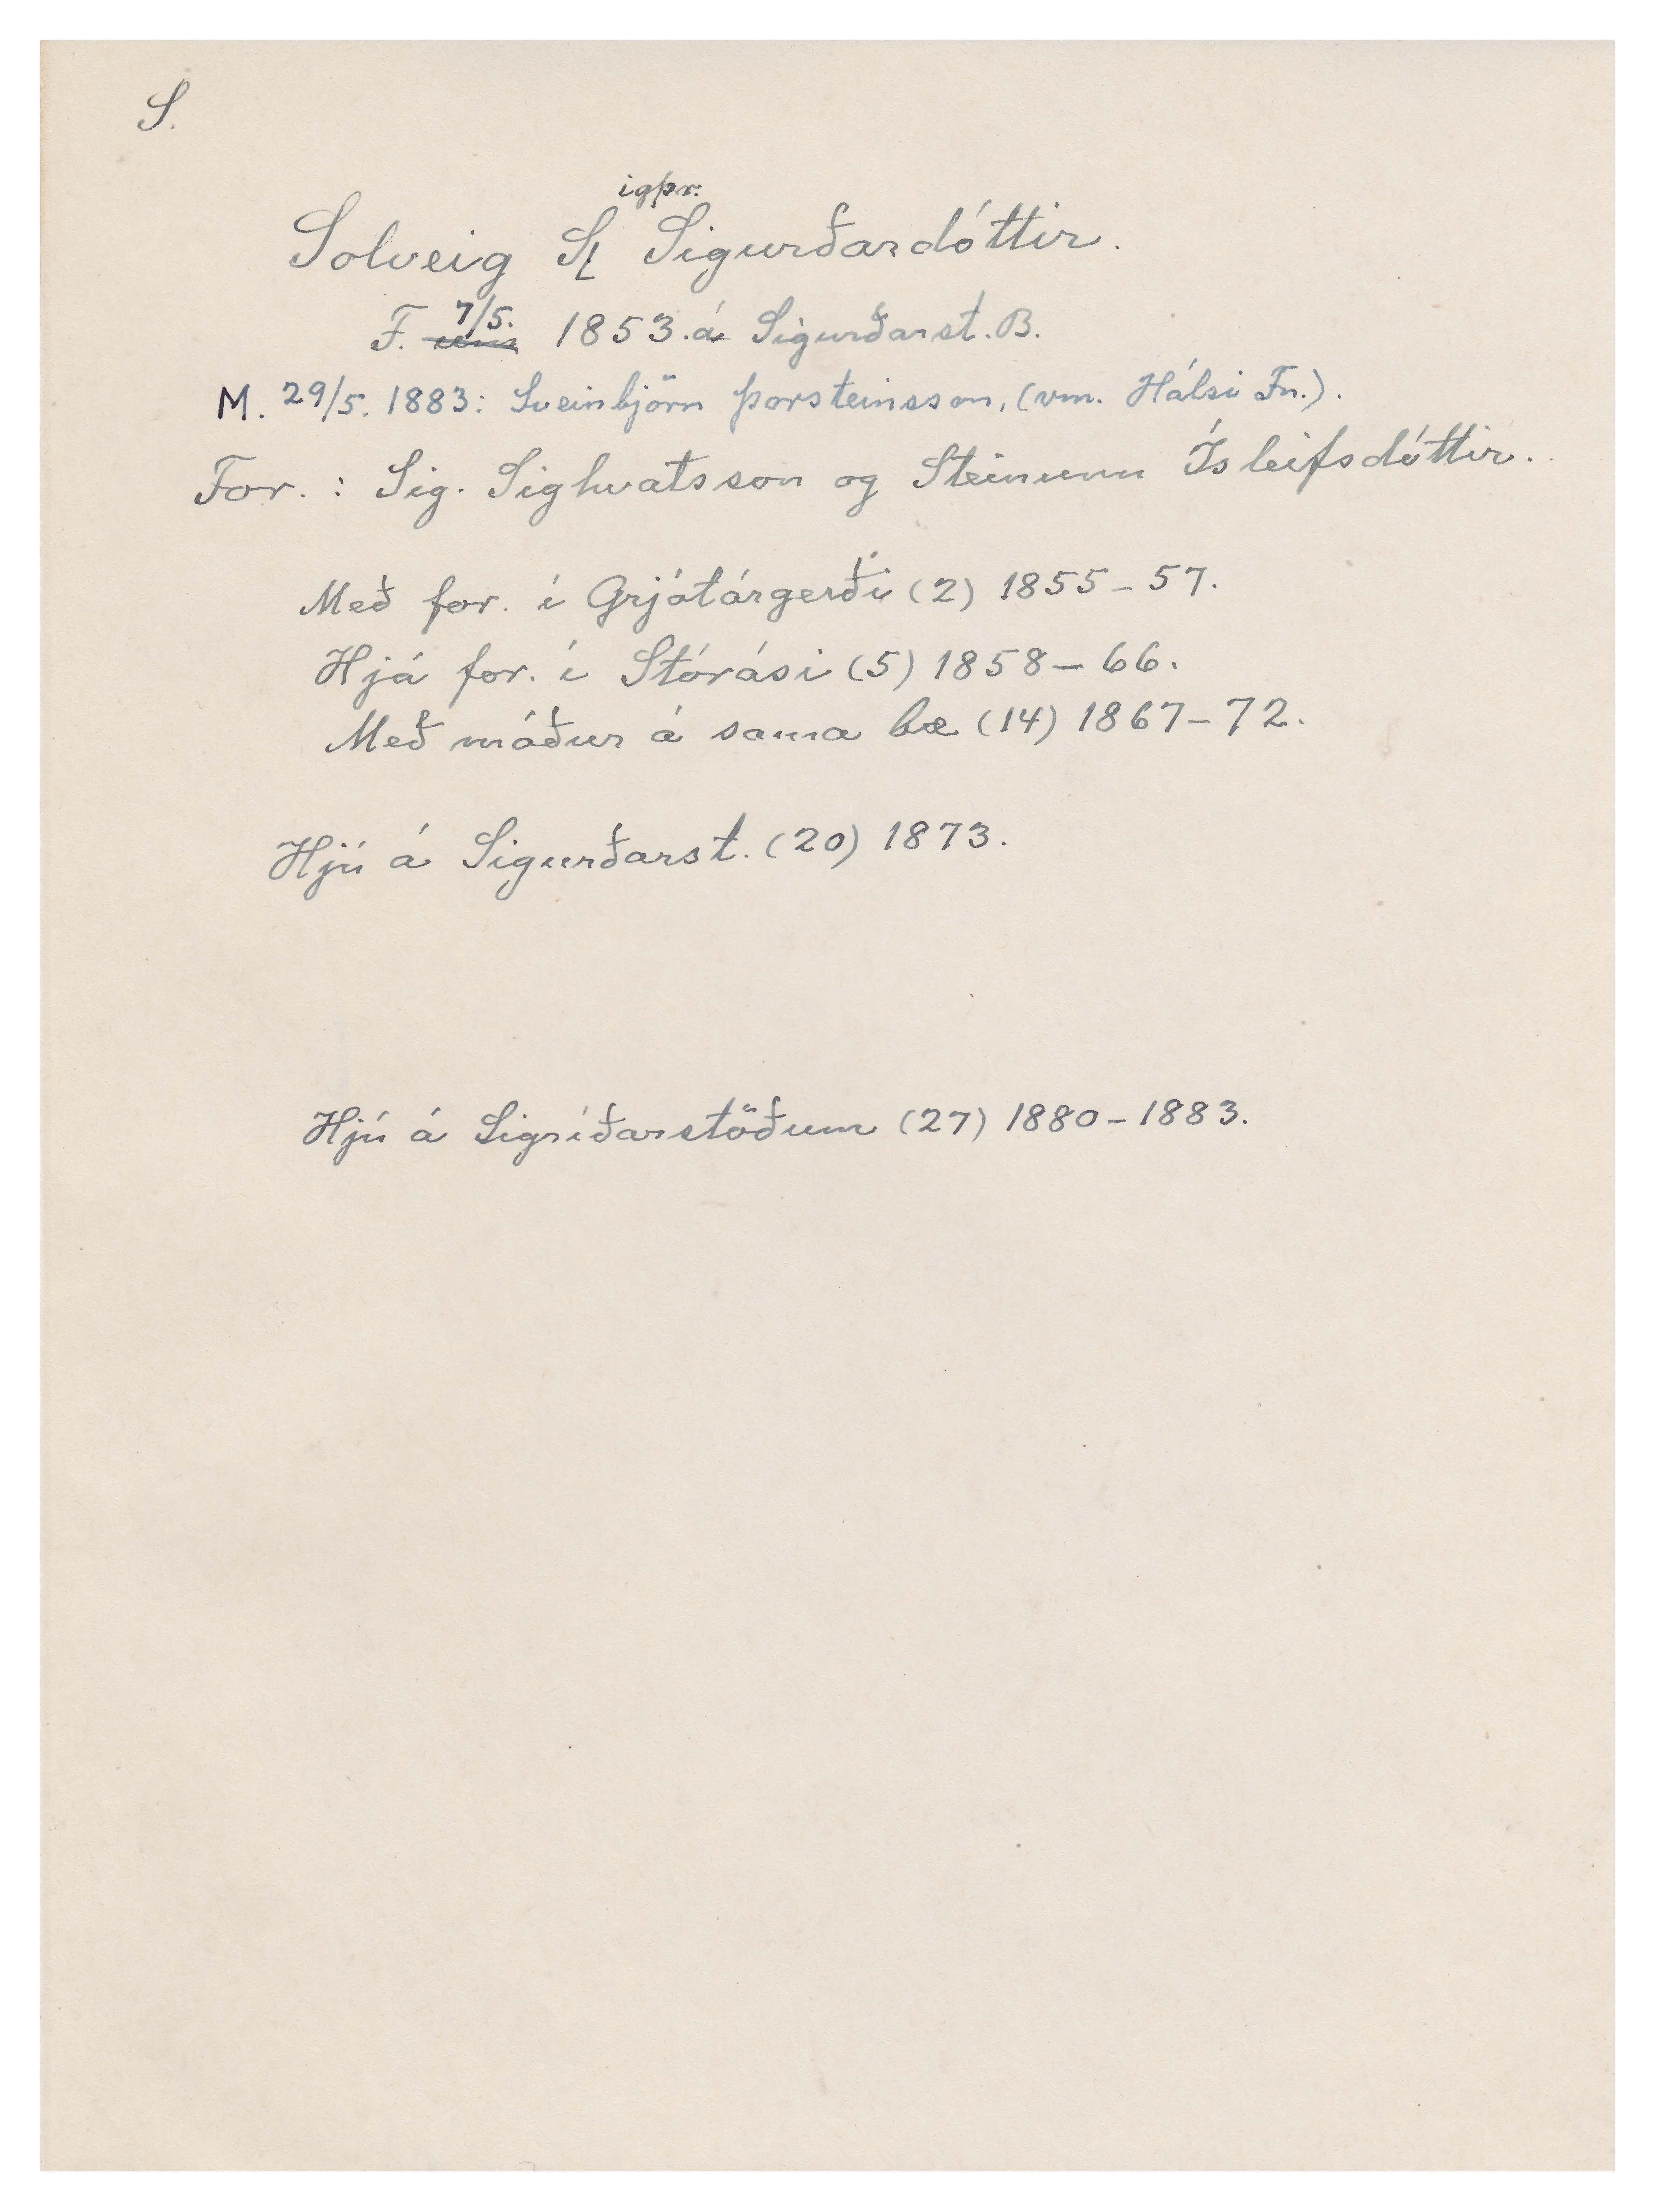 S.
igþr.
Solveig S Sigurðardóttir.
7/5.
F. 1853. á Sigurðarst. B.
M. 29/5. 1883: Sveinbjörn Þorsteinsson, (vm. Hálsi Fn.).
For. : Sig. Sighvatsson og Steinunn Ísleifsdóttir.
Með for. í Grjótárgerði (2) 1855-57.
Hjá for. í Stórási (5) 1858-66.
Með móður á sama bæ (14) 1867-72.
Hjú á Sigurðarst. (20) 1873.
Hjú á Sigríðarstöðum (27) 1880-1883.